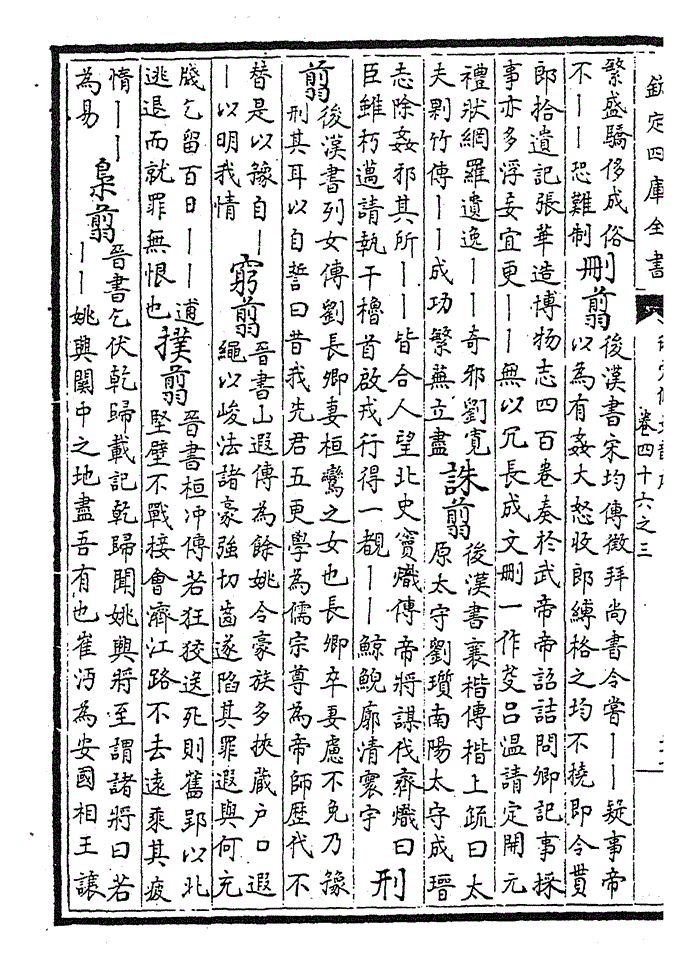 欽定四庫全書
卷四十六之三
繁盛驕侈成俗
不丨丨恐難制
刪翦
後漢書宋均傳徵拜尚書令嘗丨丨疑事帝
以為有姦大怒收郎縛格之均不撓即令貰
郎拾遺記張華造博物志四百卷奏於武帝帝詔詰問卿記事採
事亦多浮妄宜更丨丨無以冗長成文刪一作芟呂溫請定開元
禮狀網羅遺逸丨丨奇邪劉寬
夫剿竹傳丨丨成功繁蕪立盡
誅翦
後漢書襄楷傳楷上疏曰太
原太守劉瓆南陽太守成瑨
志除姦邪其所丨丨皆合人望北史竇熾傳帝將謀伐齊熾曰
臣雖朽邁請執干櫓首啟戎行得一覩丨丨鯨鯢廓清寰宇
刑
翦
後漢書列女傳劉長卿妻桓鸞之女也長卿卒妻慮不免乃豫
刑其耳以自誓曰昔我先君五更學為儒宗尊為帝師歴代不
替是以豫自丨
丨以明我情
窮翦
晉書山遐傳為餘姚令豪族多挾藏户口遐
繩以峻法諸豪強切齒遂陷其罪遐與何充
牋乞留百日丨丨逋
逃退而就罪無恨也
撲翦
晉書桓冲傳若狂狡送死則舊郢以北
堅壁不戰接會濟江路不去遠乘其疲
惰丨丨
為易
梟翦
晉書乞伏乾歸載記乾歸聞姚興將至謂諸將曰若
丨丨姚興關中之地盡吾有也崔沔為安國相王讓